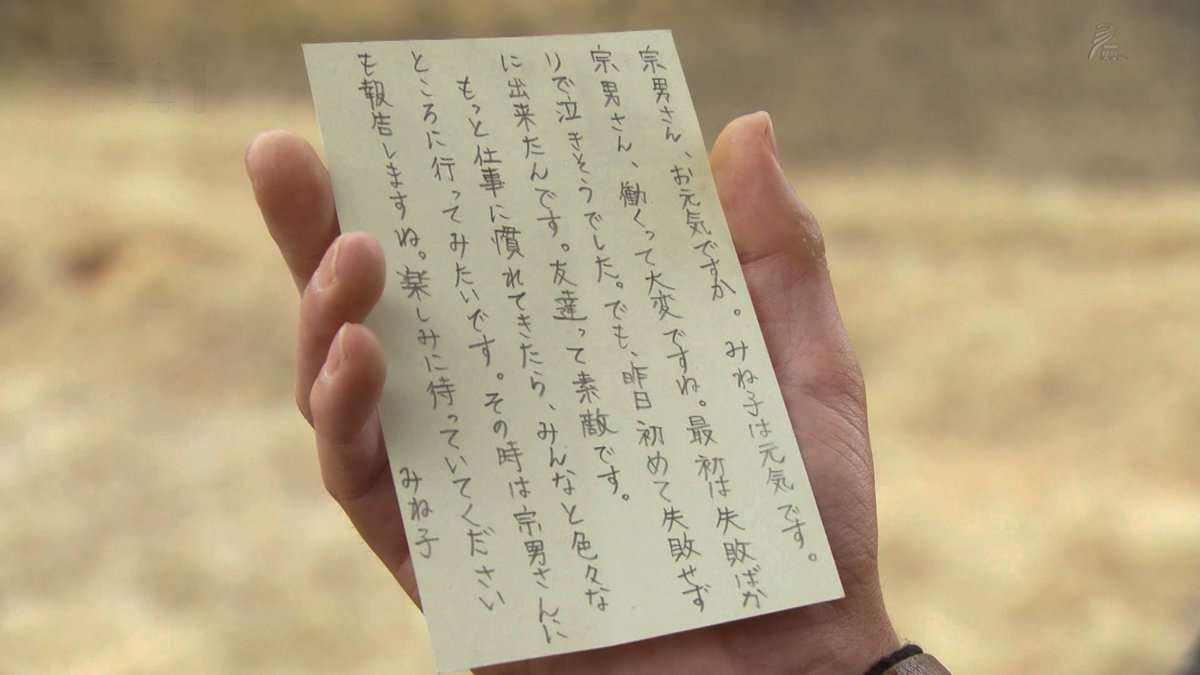 宗男さん、お元気ですか。みね子は元気です。
宗男さん、働くって大変ですね。最初は失敗ばか
りで泣きそうでした。でも、昨日初めて失敗せず
に出来たんです。友達って素敵です。
もっと仕事に慣れてきたら、みんなと色々な
ところに行ってみたいです。その時は宗男さんに
も報告しますね。楽しみに待っていてください
みね子